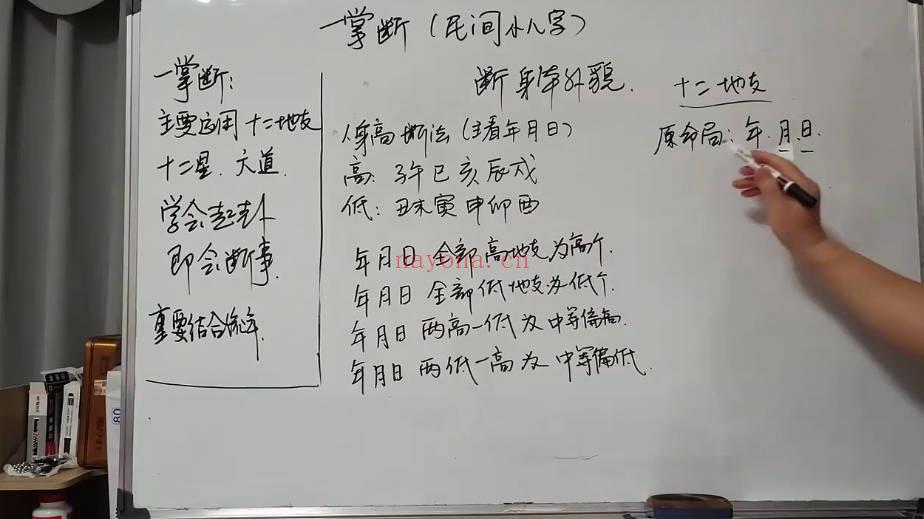 一掌断（民间小八字）
一掌断：
主要运用十二地支
十二星．六道．
学会起卦
即会断事．
重要结合流年．
断身体外貌．
人身高断法（主看年月日）
高：子午巳亥辰戌
低：丑未寅申卯酉
年月日 全部高地支为高个．
年月日 全部低地支为低个．
年月日 两高一低为中等偏高．
年月日 两低一高为中等偏低．
十二地支
原命局：年．月日．
nayona.cn